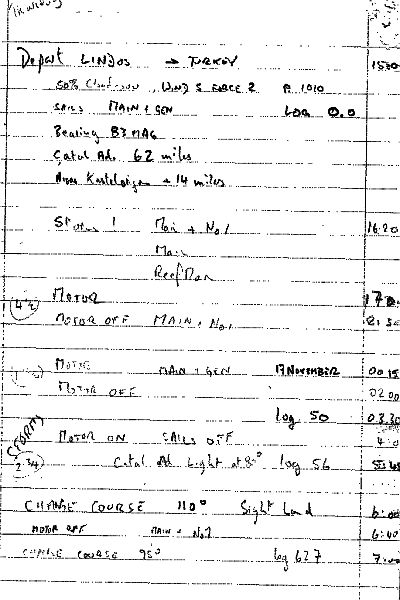 Thursday
Depart LINDOS → TURKEY 1530
50% Cloud WIND S FORCE 2 P. 1010
SAILS MAIN + GEN LOG 0.0
Bearing 83 MAG
Catal Ad. 62 miles
Kastelorizon + 14 miles
! Main + No.1 16.20
Main
Reef Main
MOTOR
MOTOR OFF MAIN + No.1
MOTOR MAIN + GEN 17 NOVEMBER 00 15
MOTOR OFF 02 00
log 50 03.30
STORMY
MOTOR ON SAILS OFF
2 3/4
Catal Ad Light at 80° log 56
CHANGE COURSE 110° Sight Land 6:00
MOTOR OFF MAIN + No.1 6:40
CHANGE COURSE 95° log 627 7:00